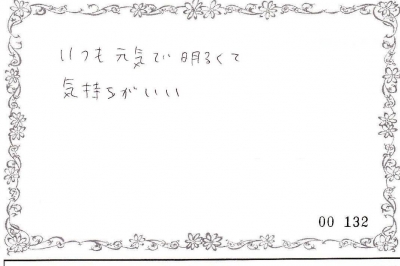 いつも元気で明るくて
気持ちがいい
00 132